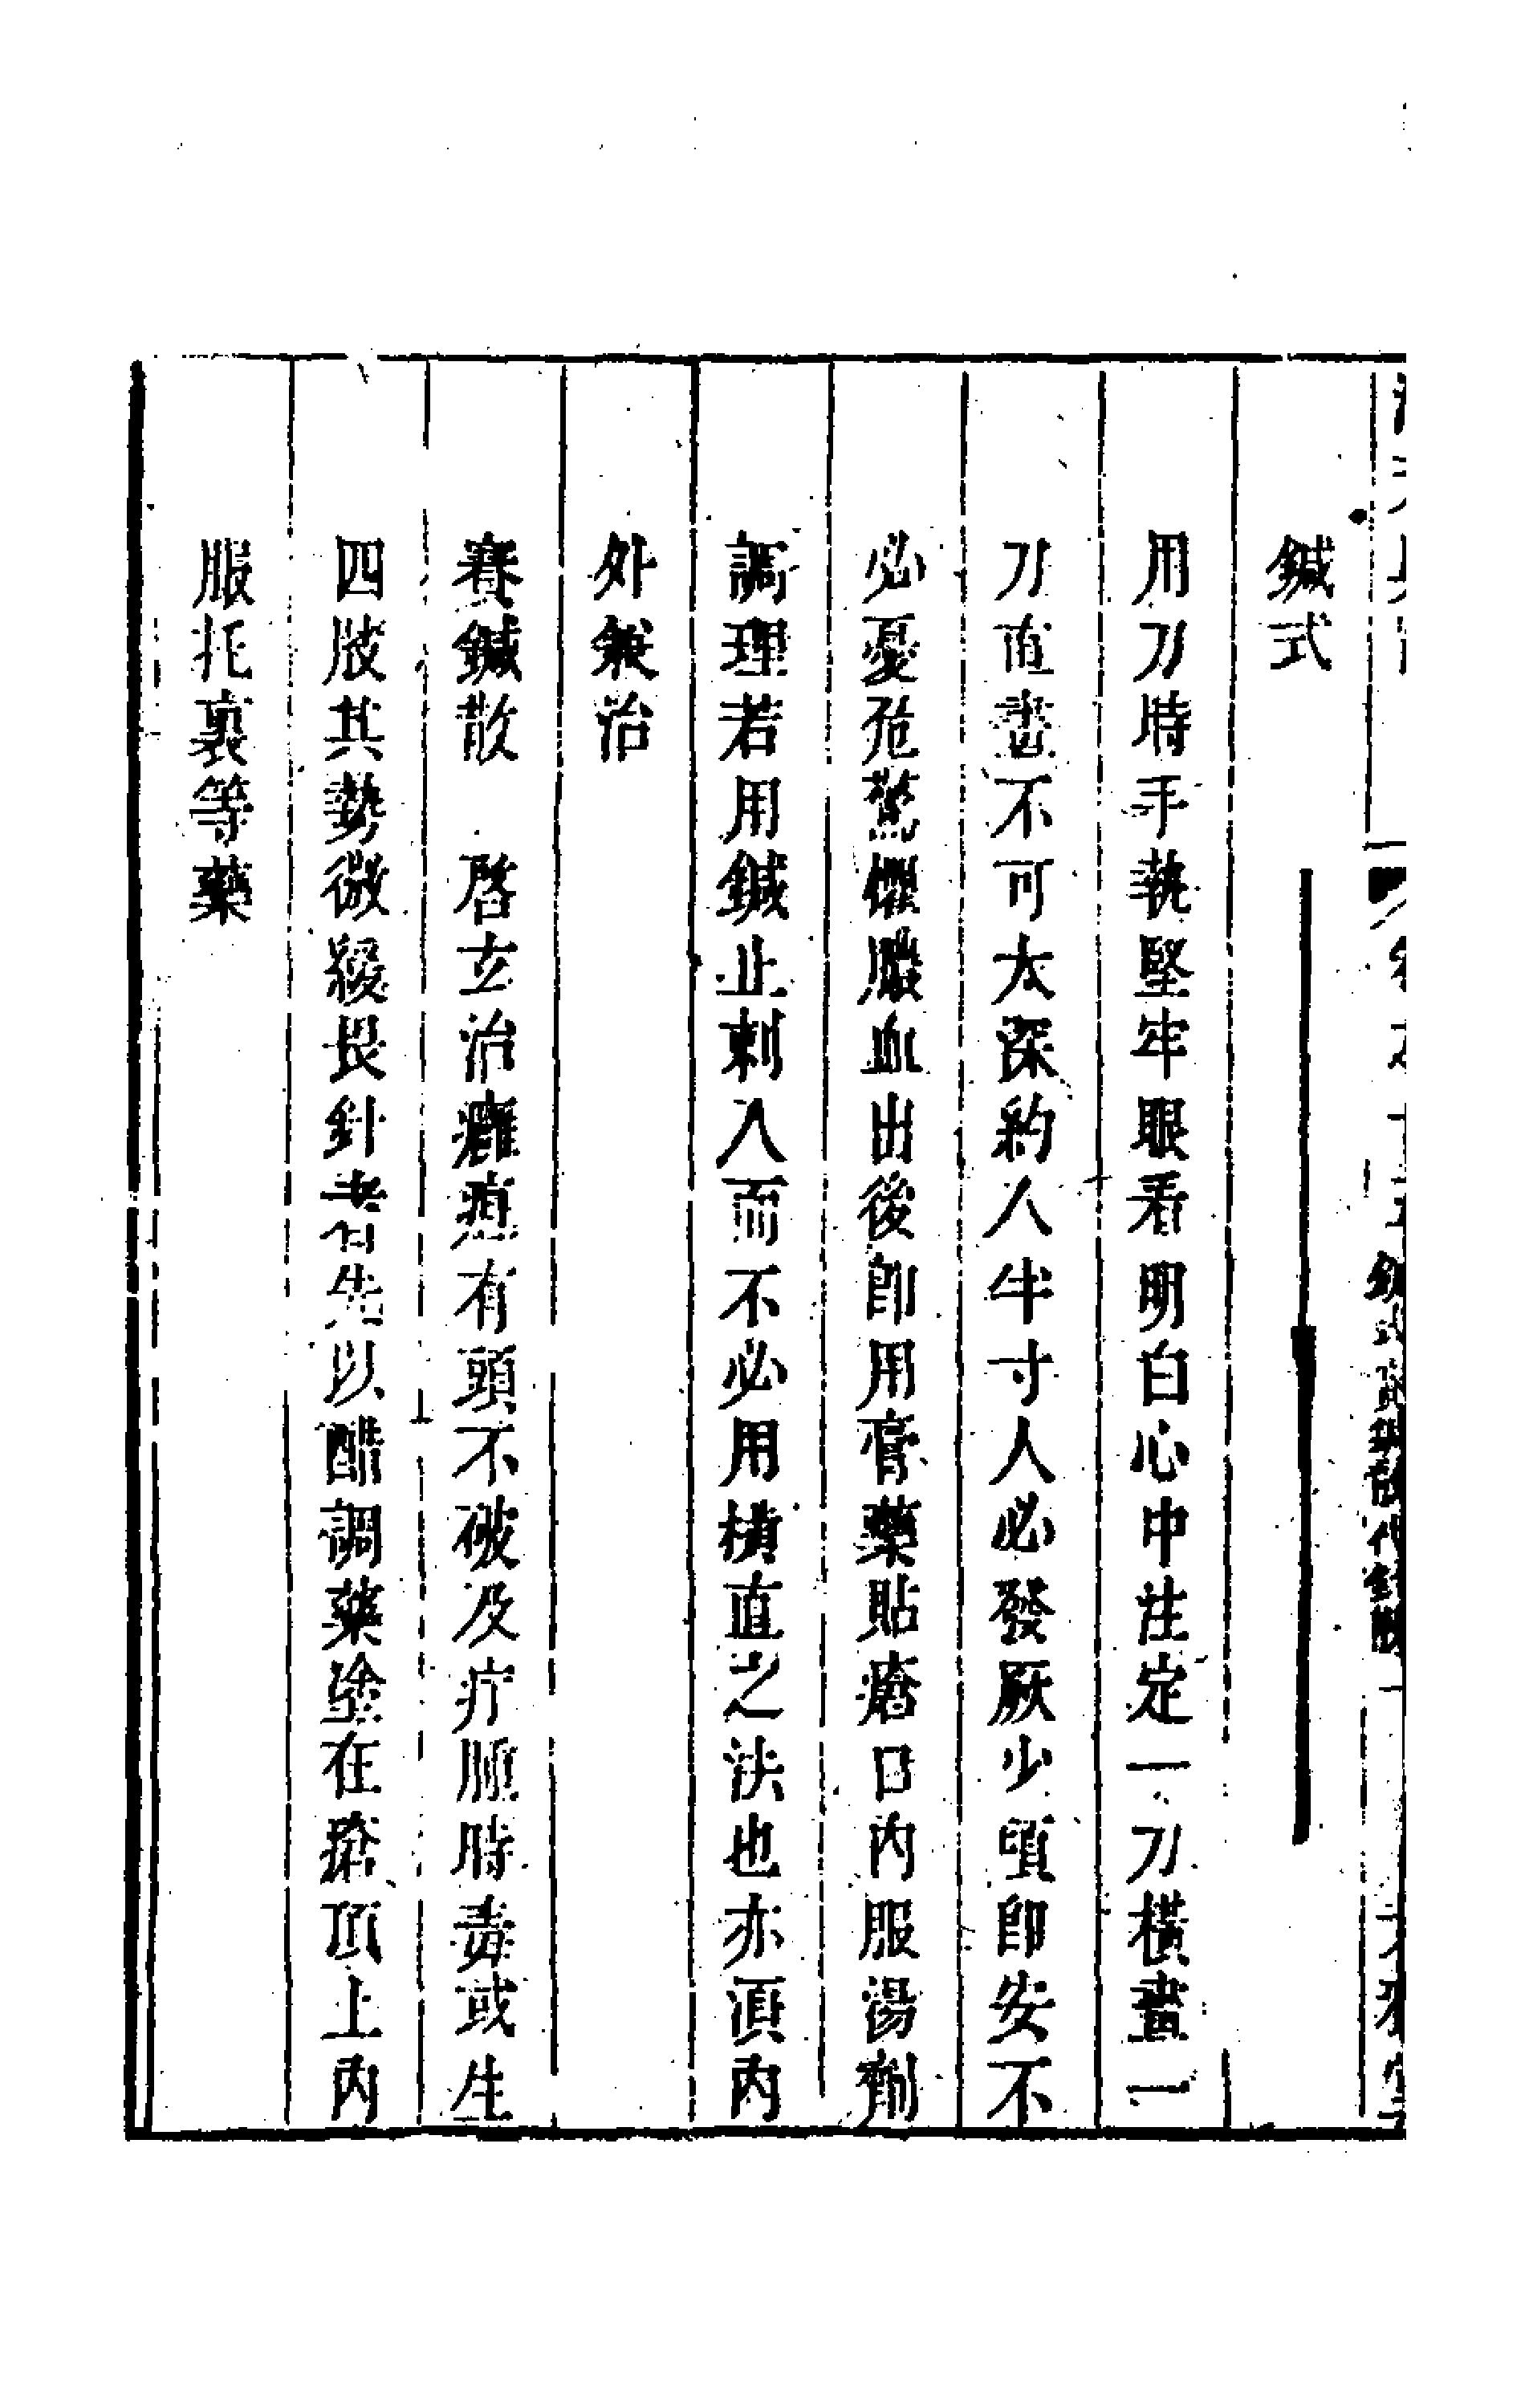 鍼式
用刀時手執堅牢眼看明白心中注定一刀橫畫一
刀直畫不可太深約入半寸人必發厥少頃卽安不
必憂危驚懼膿血出後卽用膏藥貼瘡口內服湯劑
調理若用鍼止刺入而不必用橫直之法也亦須內
外兼治
賽鍼散 啓玄治癰疽有頭不破及疔腫時毒或生
四肢其勢微緩畏針者先以醋調藥塗在瘡頂上內
服托裏等藥